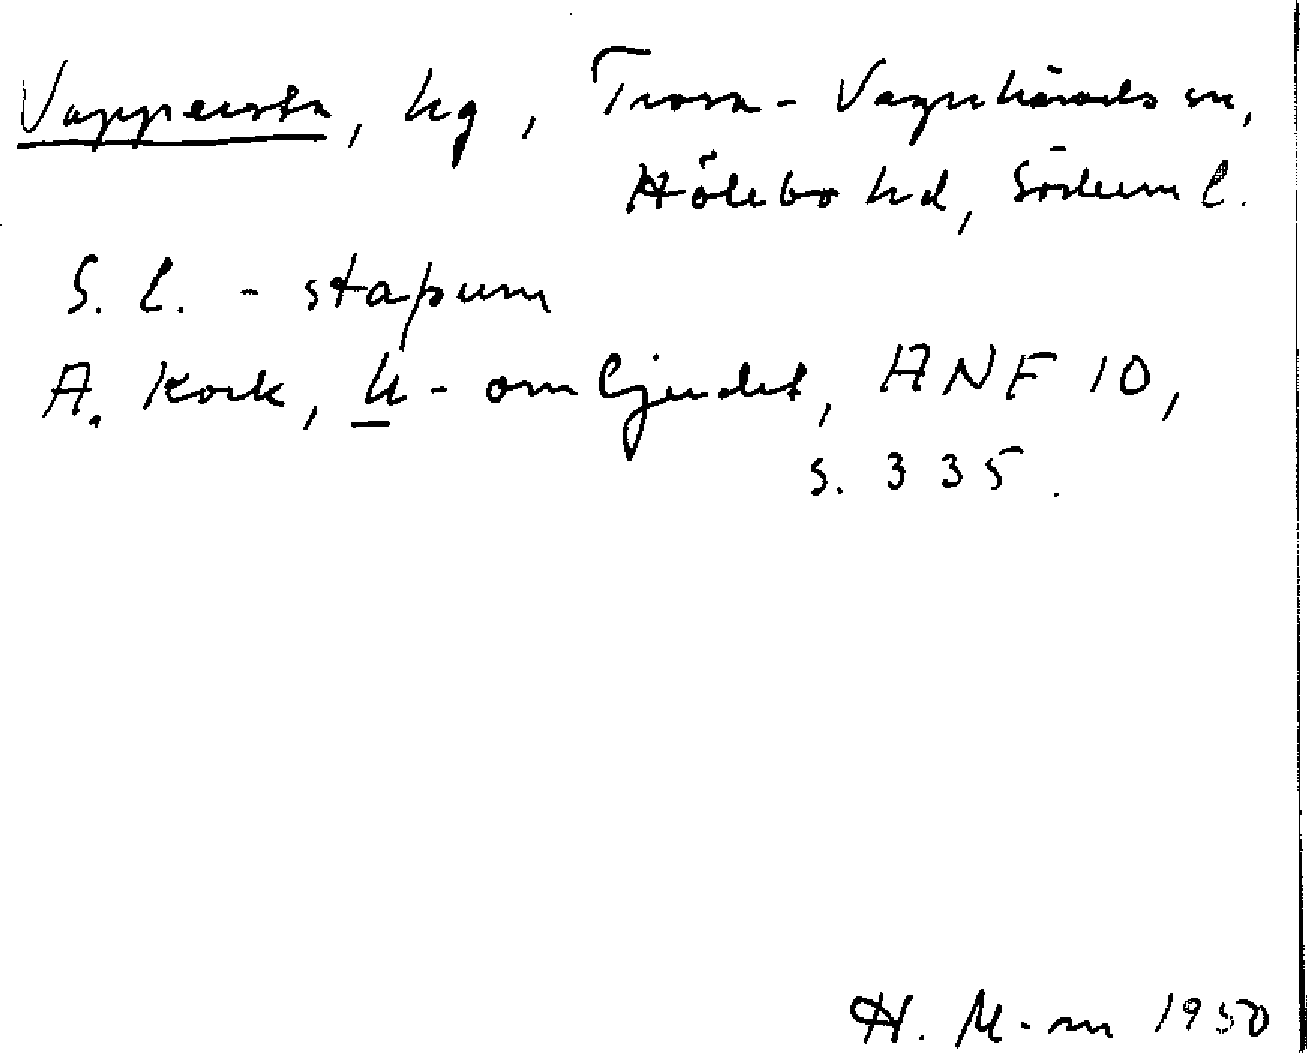 Vappersta, hg, Trosa-Vagnhärads sn,
Hölebo hd, Söderm l.
S. l. -stapum
A. Kock, u-omljudet, ANF 10,
s. 335.
H. M-m 1950